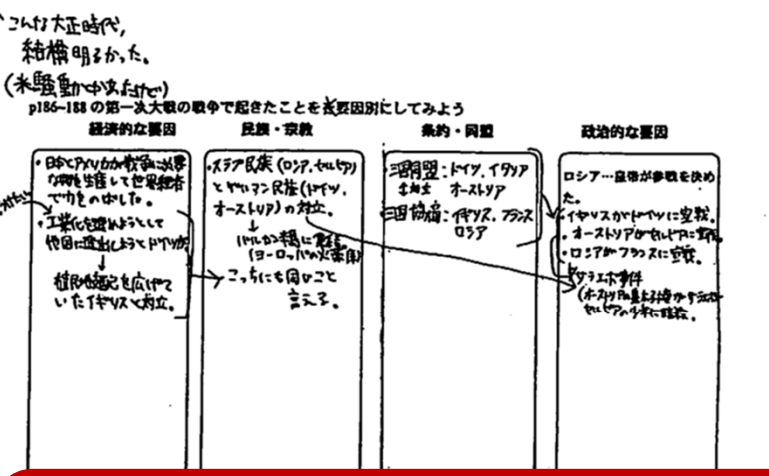 こんな大正時代,
結構明るかった。
(米騒動があったけど)
p186-188 の第一次大戦の戦争で起きたことを要因別にしてみよう
経済的な要因
民族・宗教
条約・同盟
政治的な要因
・日本とアメリカが戦争に必要
な物を生産して世界経済
で力をのばした。
・工業化を進めようとして
他国に進出しようとドイツが
↓
植民地支配を広げて
いたイギリスと対立。
・スラブ民族(ロシア、セルビア)
とゲルマン民族(ドイツ、
オーストリア)の対立。
↓
バルカン半島に
(ヨーロッパの火薬庫)
こっちにも同じこと
言える。
三国同盟:ドイツ、イタリア
オーストリア
三国協商:イギリス、フランス
ロシア
ロシア…皇帝が参戦を決め
た。
・イギリスがドイツに宣戦。
・オーストリアがセルビアに宣戦。
・ロシアがフランスに宣戦。
サラエボ事件
(オーストリアの皇太子
セルビアの少年に暗殺。